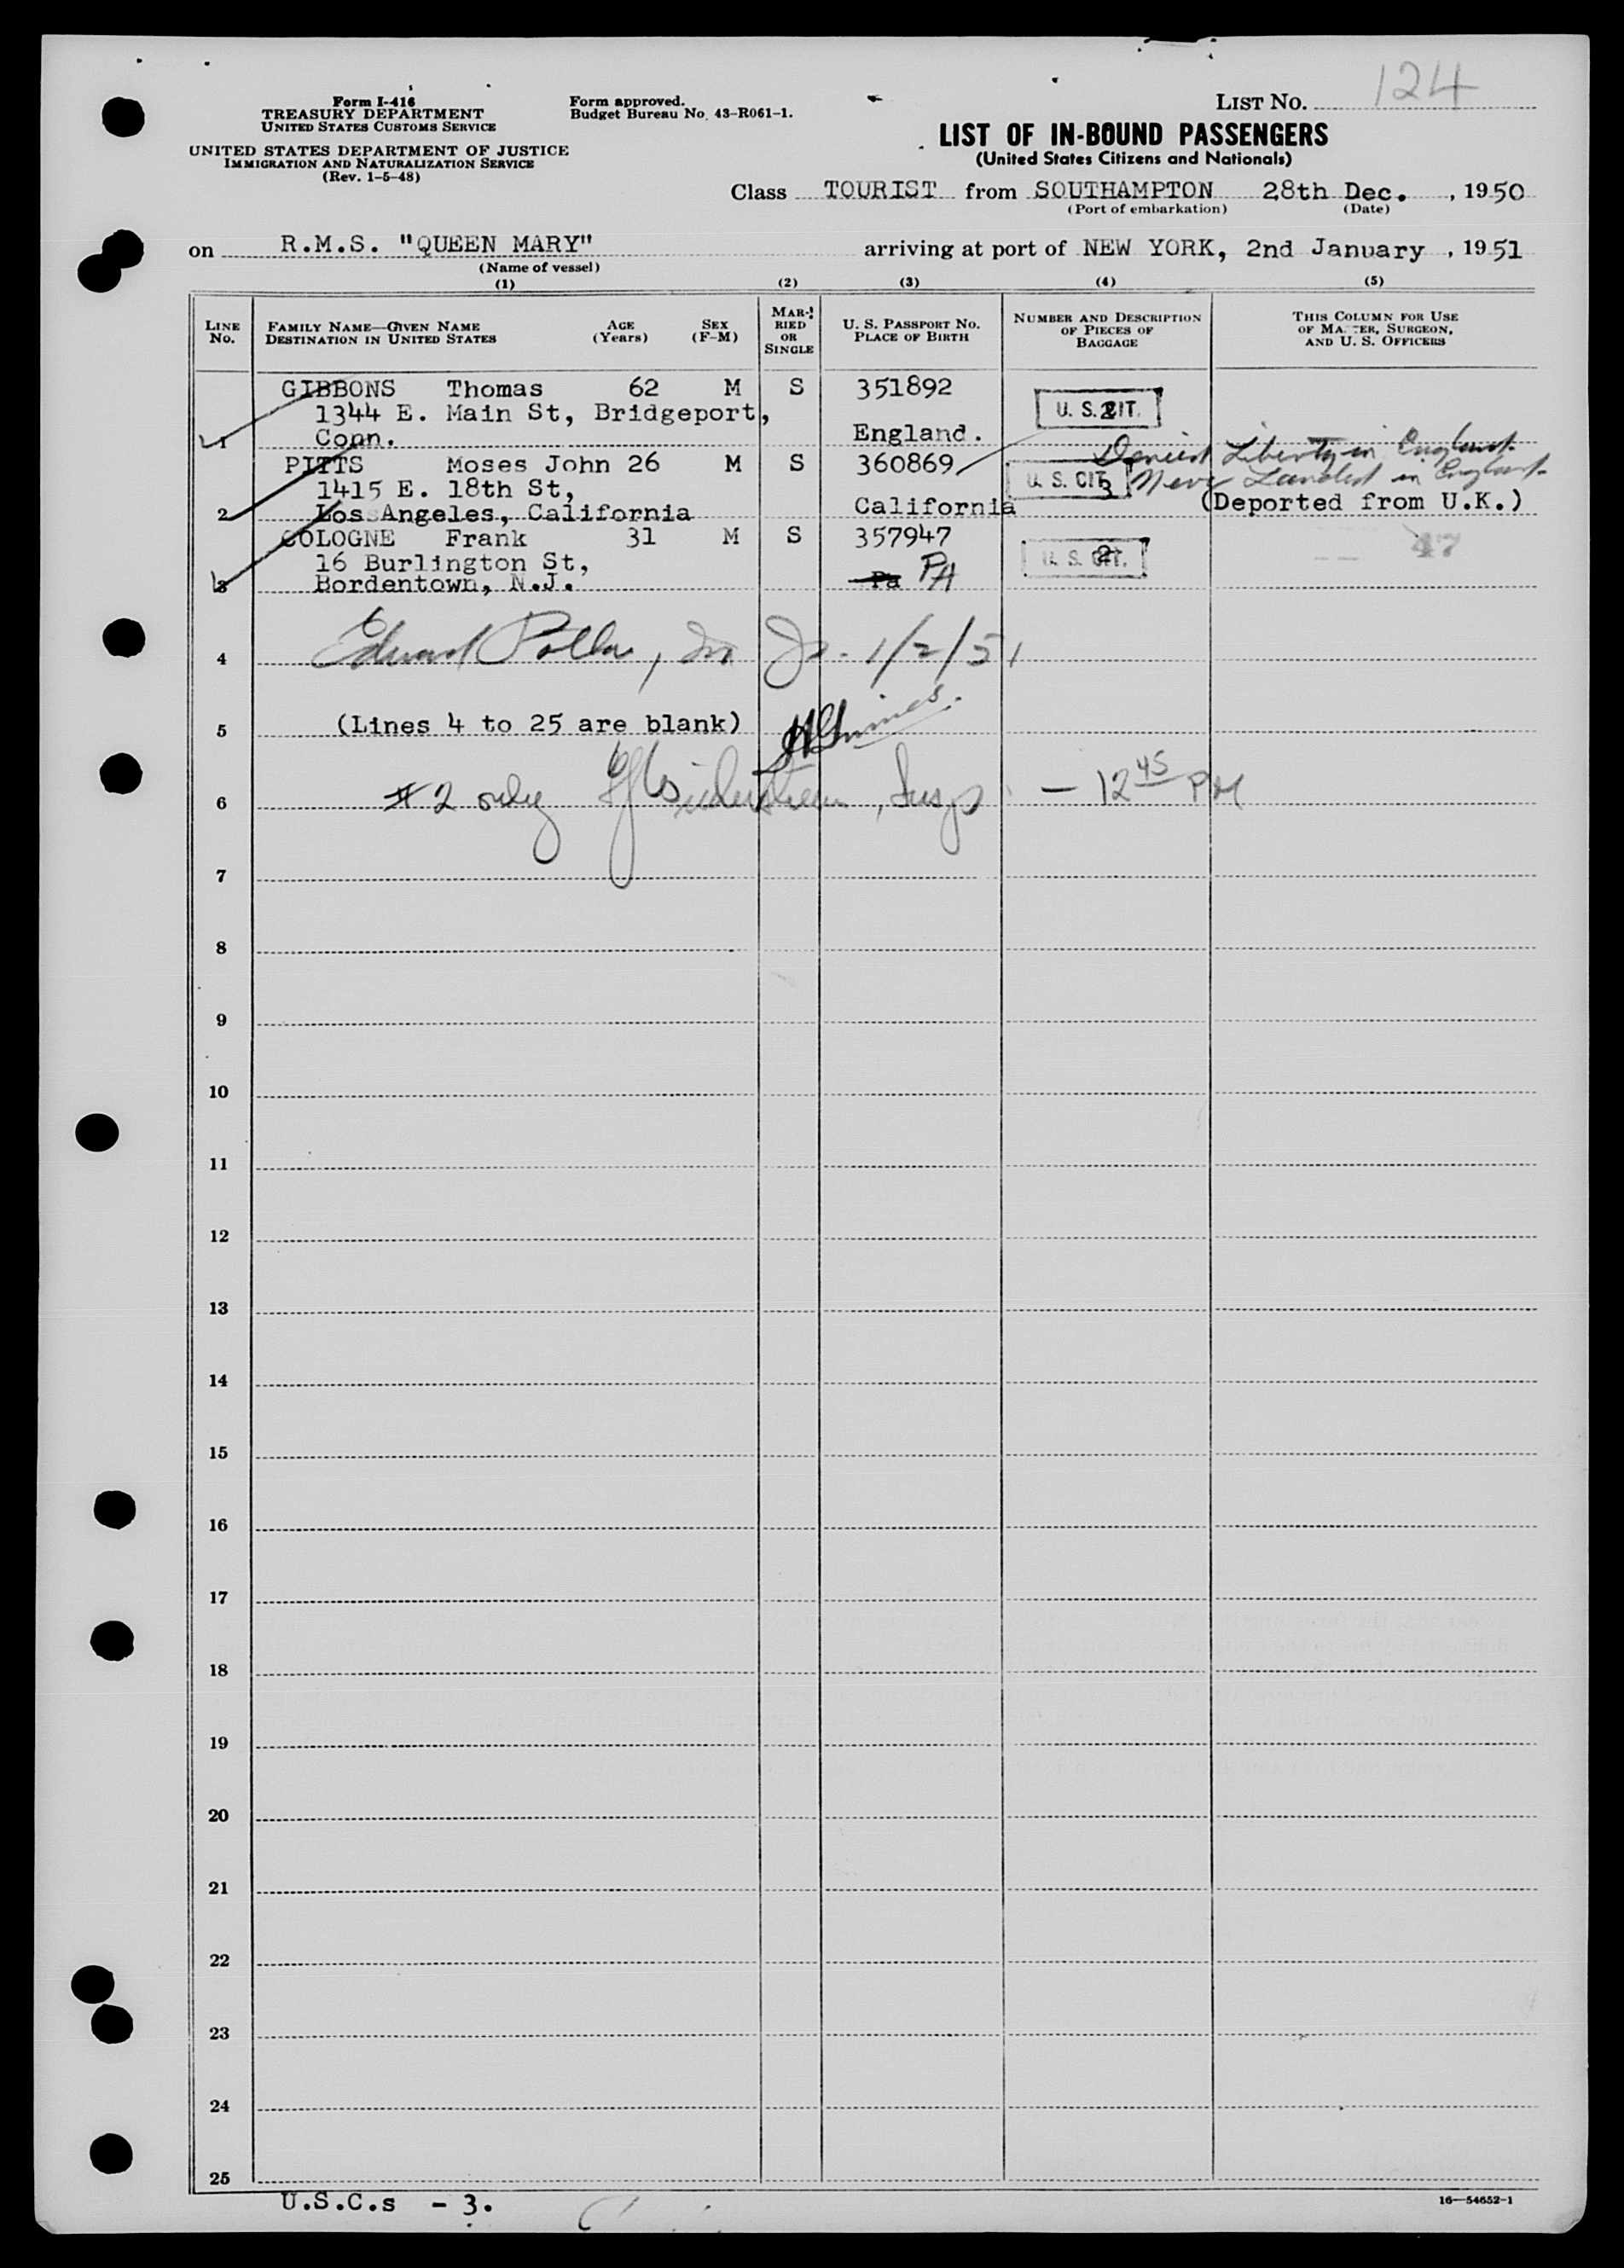 LIST No. 124
Form I-416
TREASURY DEPARTMENT
UNITED STATES CUSTOMS SERVICE
UNITED STATES DEPARTMENT OF JUSTICE
IMMIGRATION AND NATURALIZATION SERVICE
(Rev. 1-5-48)
Form approved.
Budget Bureau No. 43-R061-1.
LIST OF IN-BOUND PASSENGERS
(United States Citizens and Nationals)
Class TOURIST from SOUTHAMPTON 28th Dec. , 1950
(Port of embarkation) (Date)
on R.M.S. "QUEEN MARY" arriving at port of NEW YORK, 2nd January , 1951
(Name of vessel)
(1) (2) (3) (4) (5)
LINE No. FAMILY NAME—GIVEN NAME DESTINATION IN UNITED STATES AGE (Years) SEX (F-M) MARRIED OR SINGLE U. S. PASSPORT No. PLACE OF BIRTH NUMBER AND DESCRIPTION OF PIECES OF BAGGAGE THIS COLUMN FOR USE OF MASTER, SURGEON, AND U. S. OFFICERS
GIBBONS Thomas 62 M S 351892
1344 E. Main St, Bridgeport, U. S. CIT. 2
1 Conn. England.
Denied Liberty in England
PITTS Moses John 26 M S 360869
1415 E. 18th St, U. S. CIT. 3 Never Landed in England
2 Los Angeles, California California (Deported from U.K.)
COLOGNE Frank 31 M S 357947 47
16 Burlington St, U. S. CIT. 2
3 Bordentown, N.J. Pa PA
4 Edward 1/2/51
5 (Lines 4 to 25 are blank)
6 #2 only , Insp - 12 45 PM
7
8
9
10
11
12
13
14
15
16
17
18
19
20
21
22
23
24
25
U.S.C.s - 3.
16—54652-1